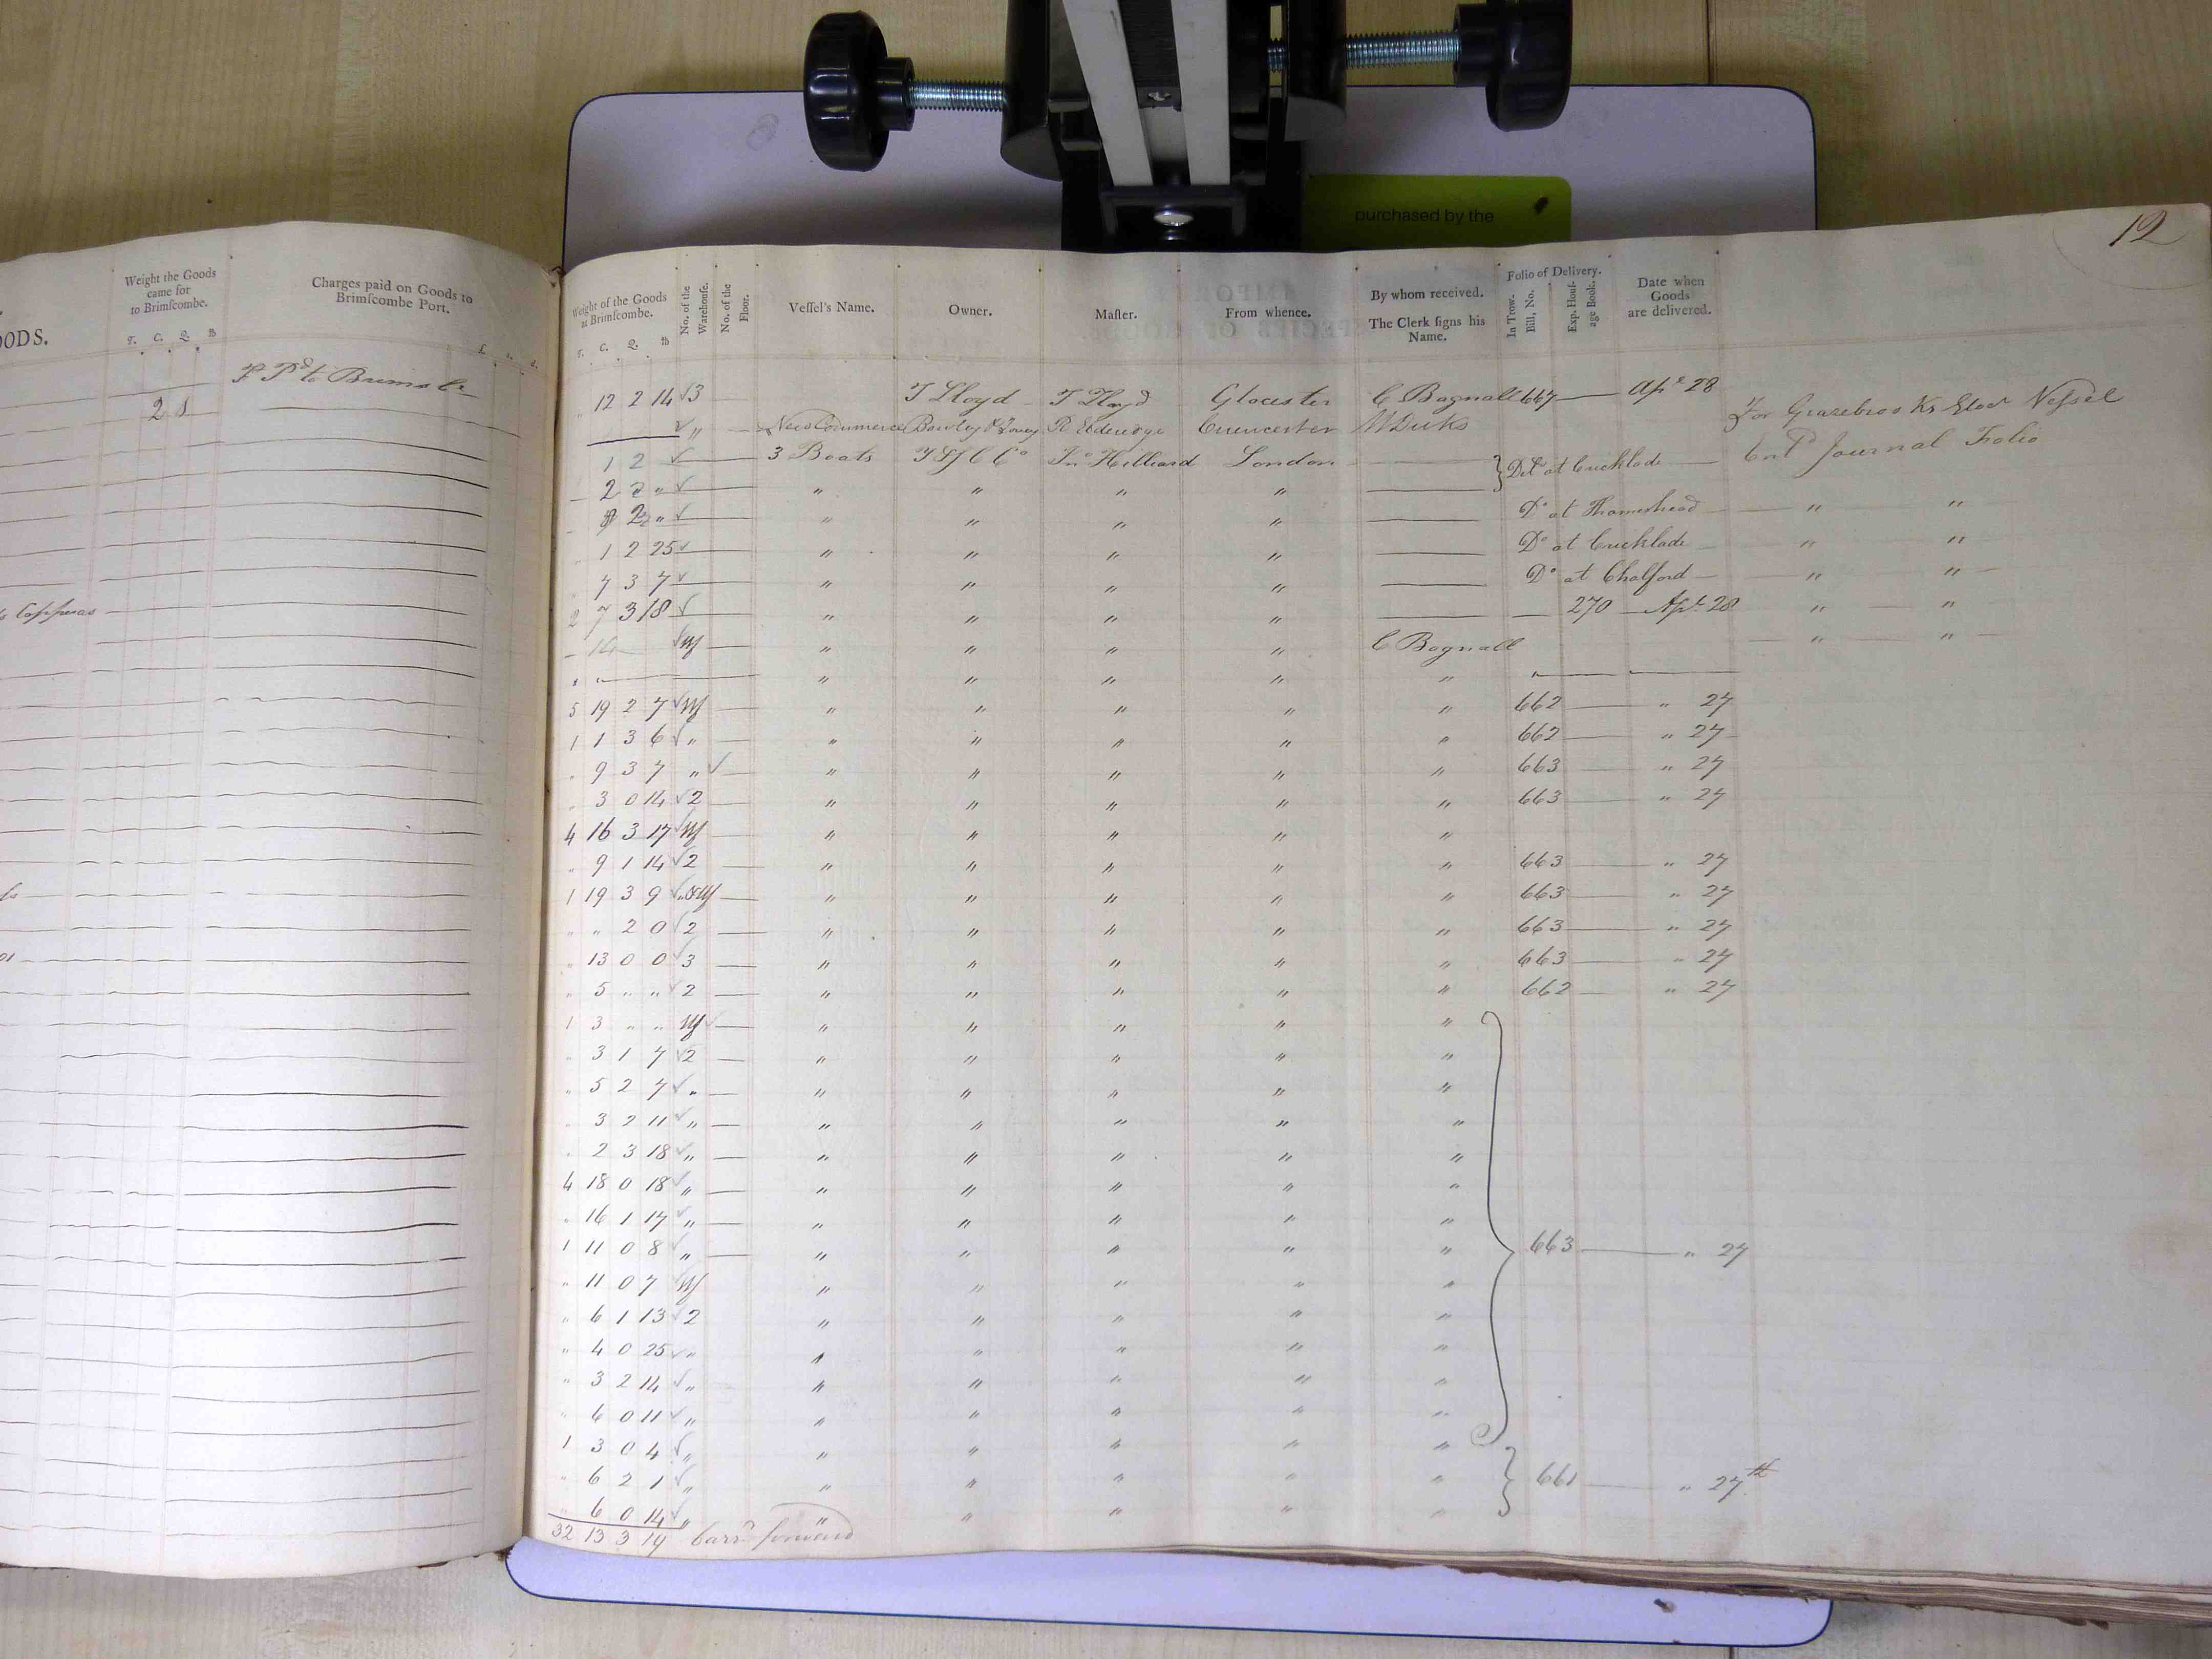 purchased by the
12
OODS.
Weight the Goods came for to Brimscombe.
T. C. Q. lb
Charges paid on Goods to Brimscombe Port.
£. s. d.
Weight of the Goods at Brimscombe.
T. C. Q. lb
No. of the Warehouse.
No. of the Floor.
Vessel's Name.
Owner.
Master.
From whence.
By whom received.
The Clerk signs his Name.
Folio of Delivery.
In Trow-Bill, No.
Exp. Hous-age Book.
Date when Goods are delivered.
2 1
Copperas
" 12 2 14 √ 3 — T Lloyd T Lloyd Glocester C Bagnall 667 — Apl 28
√ " — New Commerce Bowley & Co R Edendge Cirencester W Dicks For Grazebrooks Vessel
1 2 √ — 3 Boats Jno Hilliard London — Deld at Cricklade — Entd Journal Folio
2 2 " √ — " " " " —
8 2 " √ — " " " " — Do at Thameshead — " "
" 1 2 25 √ — " " " " — Do at Cricklade — " "
" 7 3 7 √ — " " " " — Do at Chalford — " "
2 7 3 18 √ — " " " " — 270 — Apl 28 " "
14 √ W — " " " " C Bagnall — " "
" " — " " " " " " —
5 19 2 7 √ W — " " " " " 662 — " 27
1 1 3 6 √ " — " " " " " 662 — " 27
" 9 3 7 " √ — " " " " " 663 — " 27
" 3 0 14 √ 2 — " " " " " 663 — " 27
4 16 3 17 √ W — " " " " "
" 9 1 14 √ 2 — " " " " " 663 — " 27
1 19 3 9 √ " & W — " " " " " 663 — " 27
" " 2 0 √ 2 — " " " " " 663 — " 27
" 13 0 0 √ 3 — " " " " " 663 — " 27
" 5 " " √ 2 — " " " " " 662 — " 27
1 3 " " W √ — " " " " "
" 3 1 7 √ 2 — " " " " "
" 5 2 7 √ " — " " " " "
" 3 2 11 √ " — " " " " "
" 2 3 18 √ " — " " " " "
4 18 0 18 √ " — " " " " "
" 16 1 17 √ " — " " " " "
1 11 0 8 √ " — " " " " " 663 — " 27
" 11 0 7 √ W " " " " "
" 6 1 13 √ 2 " " " " "
" 4 0 25 √ " " " " " "
" 3 2 14 √ " " " " " "
" 6 0 11 √ " " " " " "
1 3 0 4 √ " " " " " "
" 6 2 1 √ " " " " " " 661 — " 27th
" 6 0 14 √ " " " " " "
32 13 3 19 Carrd forward